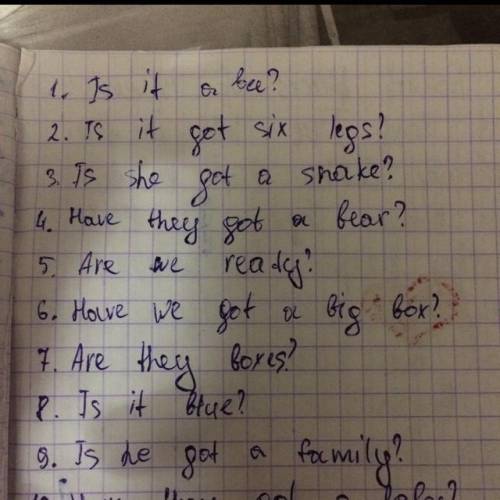 1. Is it a bee?
2. Is it got six legs?
3. Is she got a snake?
4. Have they got a bear?
5. Are we ready?
6. Have we got a big box?
7. Are they boxes?
8. Is it blue?
9. Is he got a family?
they got a